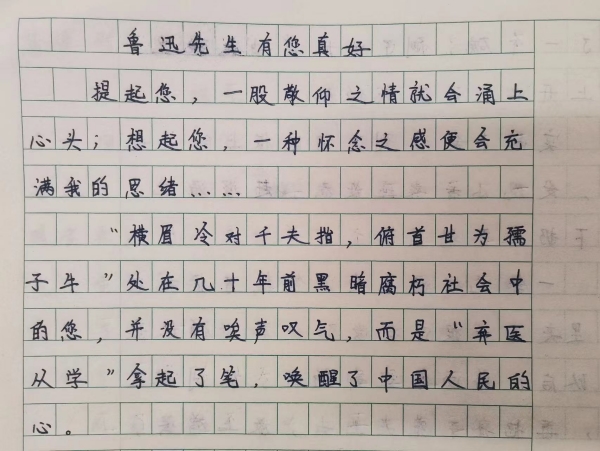 鲁迅先生有您真好
提起您，一股敬仰之情就会涌上
心头；想起您，一种怀念之感便会充
满我的思绪……
“横眉冷对千夫指，俯首甘为孺
子牛”处在几十年前黑暗腐朽社会中
的您，并没有唉声叹气，而是“弃医
从学”拿起了笔，唤醒了中国人民的
心。